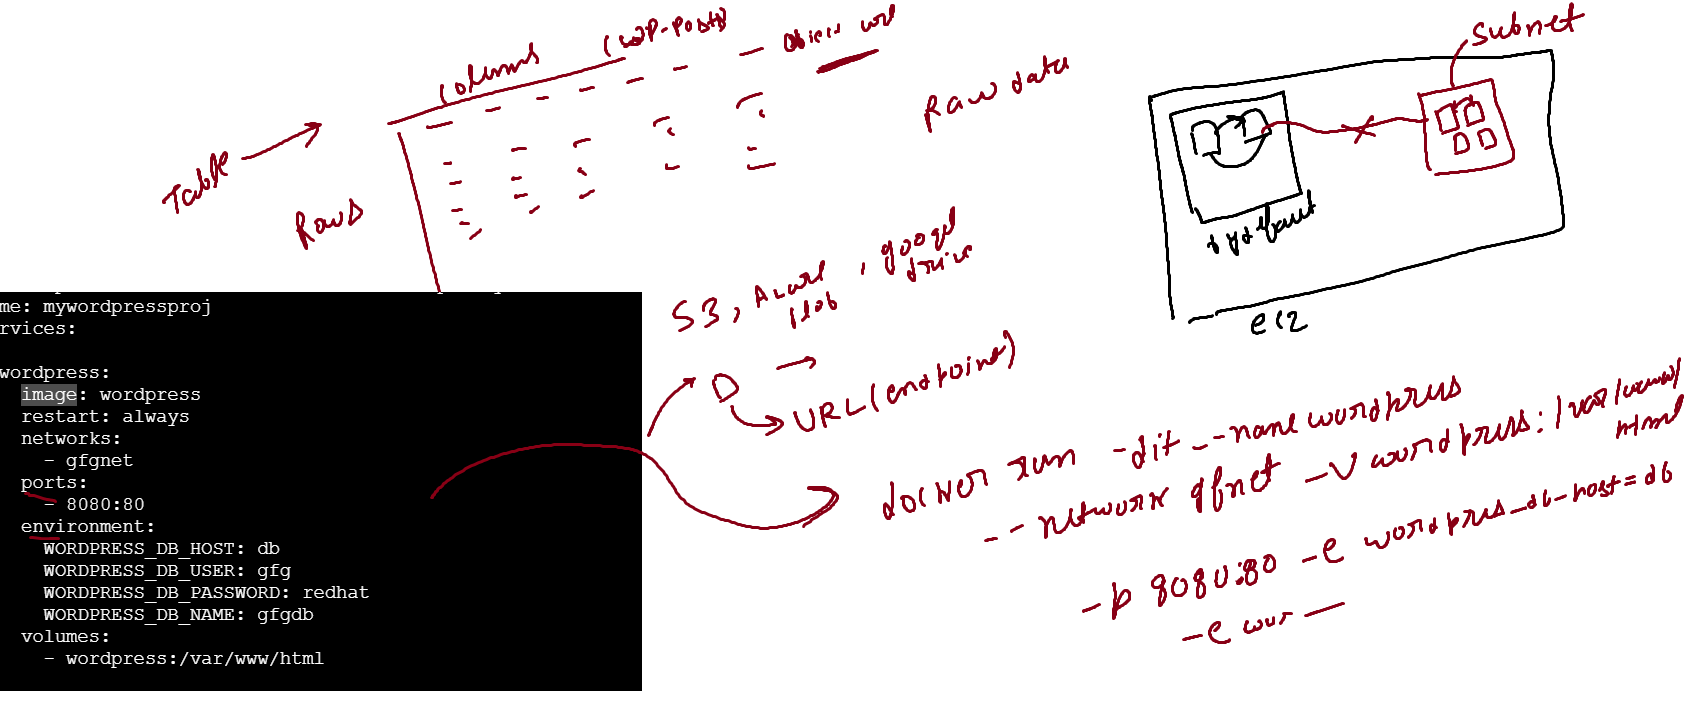 columns (WP-Posts)
object url
Table
Rows
Raw data
subnet
by default
ec2
S3, Azure blob, googel drive
URL (endpoint)
me: mywordpressproj
rvices:
wordpress:
image: wordpress
restart: always
networks:
- gfgnet
ports:
- 8080:80
environment:
WORDPRESS_DB_HOST: db
WORDPRESS_DB_USER: gfg
WORDPRESS_DB_PASSWORD: redhat
WORDPRESS_DB_NAME: gfgdb
volumes:
- wordpress:/var/www/html
docker run -dit --name wordpress
--network gfnet -v wordpress:/var/www/
html
-p 8080:80 -e wordpress_db-host=db
-e wor